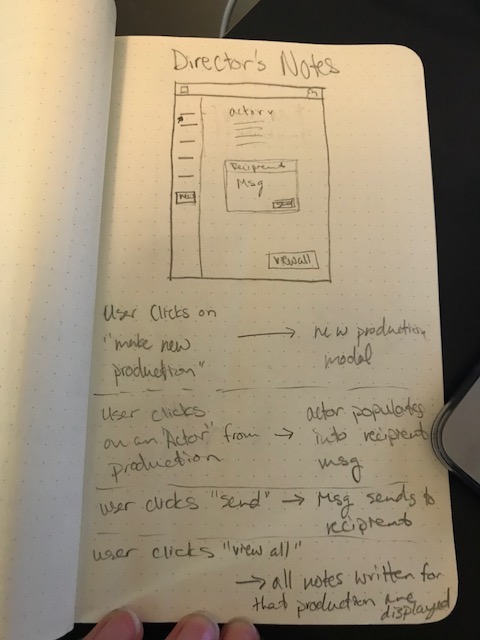 Director's Notes
actor
Recipient
Msg
send
view all
User Clicks on
"make new
production"
→ new production
modal
User clicks
on an "Actor" from
production
→ actor populates
into recipient
msg
user clicks "send" → Msg sends to
recipient
user clicks "view all"
→ all notes written for
that production are
displayed